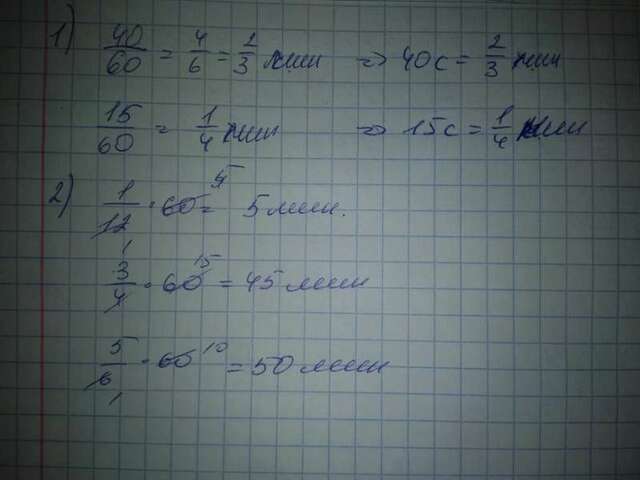 1) 40/60 = 4/6 = 2/3 мин ⇒ 40с = 2/3 мин
15/60 = 1/4 мин ⇒ 15с = 1/4 мин
2) 1/12 · 60 5 = 5 мин.
3/4 · 60 15 = 45 мин
5/6 · 60 10 = 50 мин